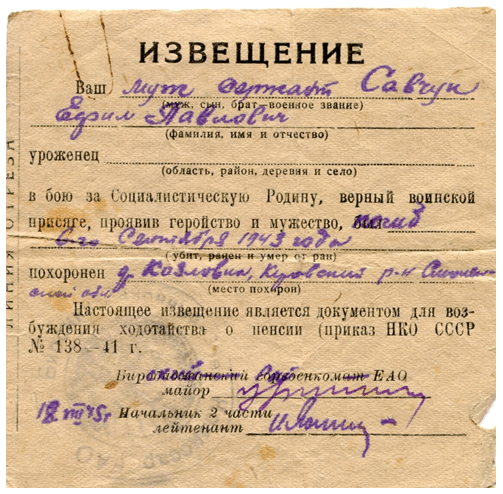 ИЗВЕЩЕНИЕ
Ваш муж сержант Савчук
(муж, сын, брат, военное звание)
Ефим Павлович
(фамилия, имя и отчество)
уроженец
(область, район, деревня и село)
в бою за Социалистическую Родину, верный воинской
присяге, проявив геройство и мужество, был погиб
6го Сентября 1943 года
(убит, ранен и умер от ран)
похоронен д. Козловка, р-н Смолен-
ской обл
(место похорон)
Настоящее извещение является документом для воз-
буждения ходотайства о пенсии (приказ НКО СССР
№ 138—41 г.
Биробиджанский горвоенкомат ЕАО
майор
18 VIII 45г Начальник 2 части
лейтенант
ЛИНИЯ ОТРЕЗА